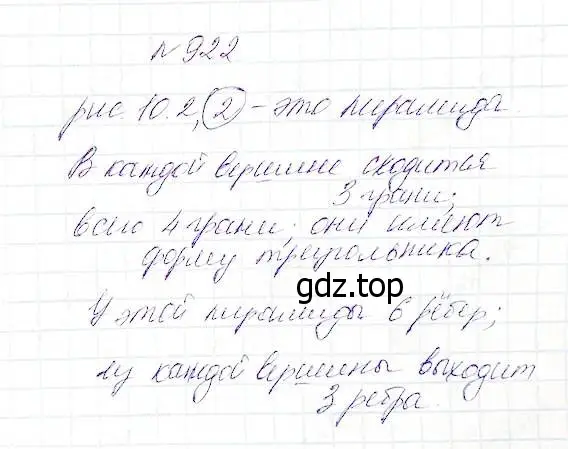 № 922
рис. 10.2, 2 – это пирамида.
В каждой вершине сходится
3 грани;
всего 4 грани; они имеют
форму треугольника.
gdz.top
У этой пирамиды 6 рёбер;
из каждой вершины выходит
3 ребра.